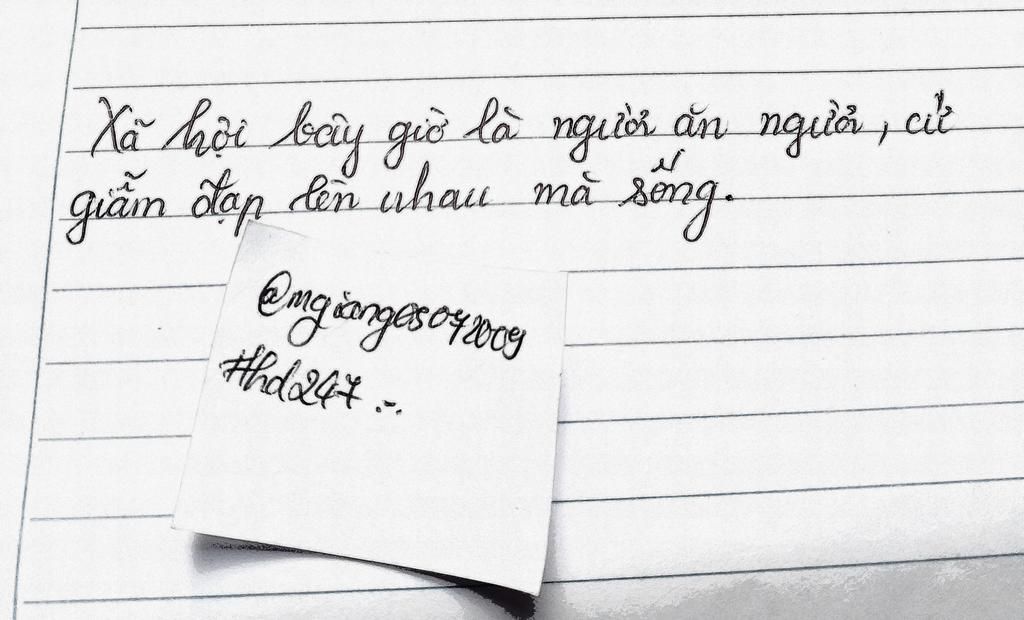 Xã hội bây giờ là người ăn người, cứ
giẫm đạp lên nhau mà sống.
@mgiang05072009
#hd247